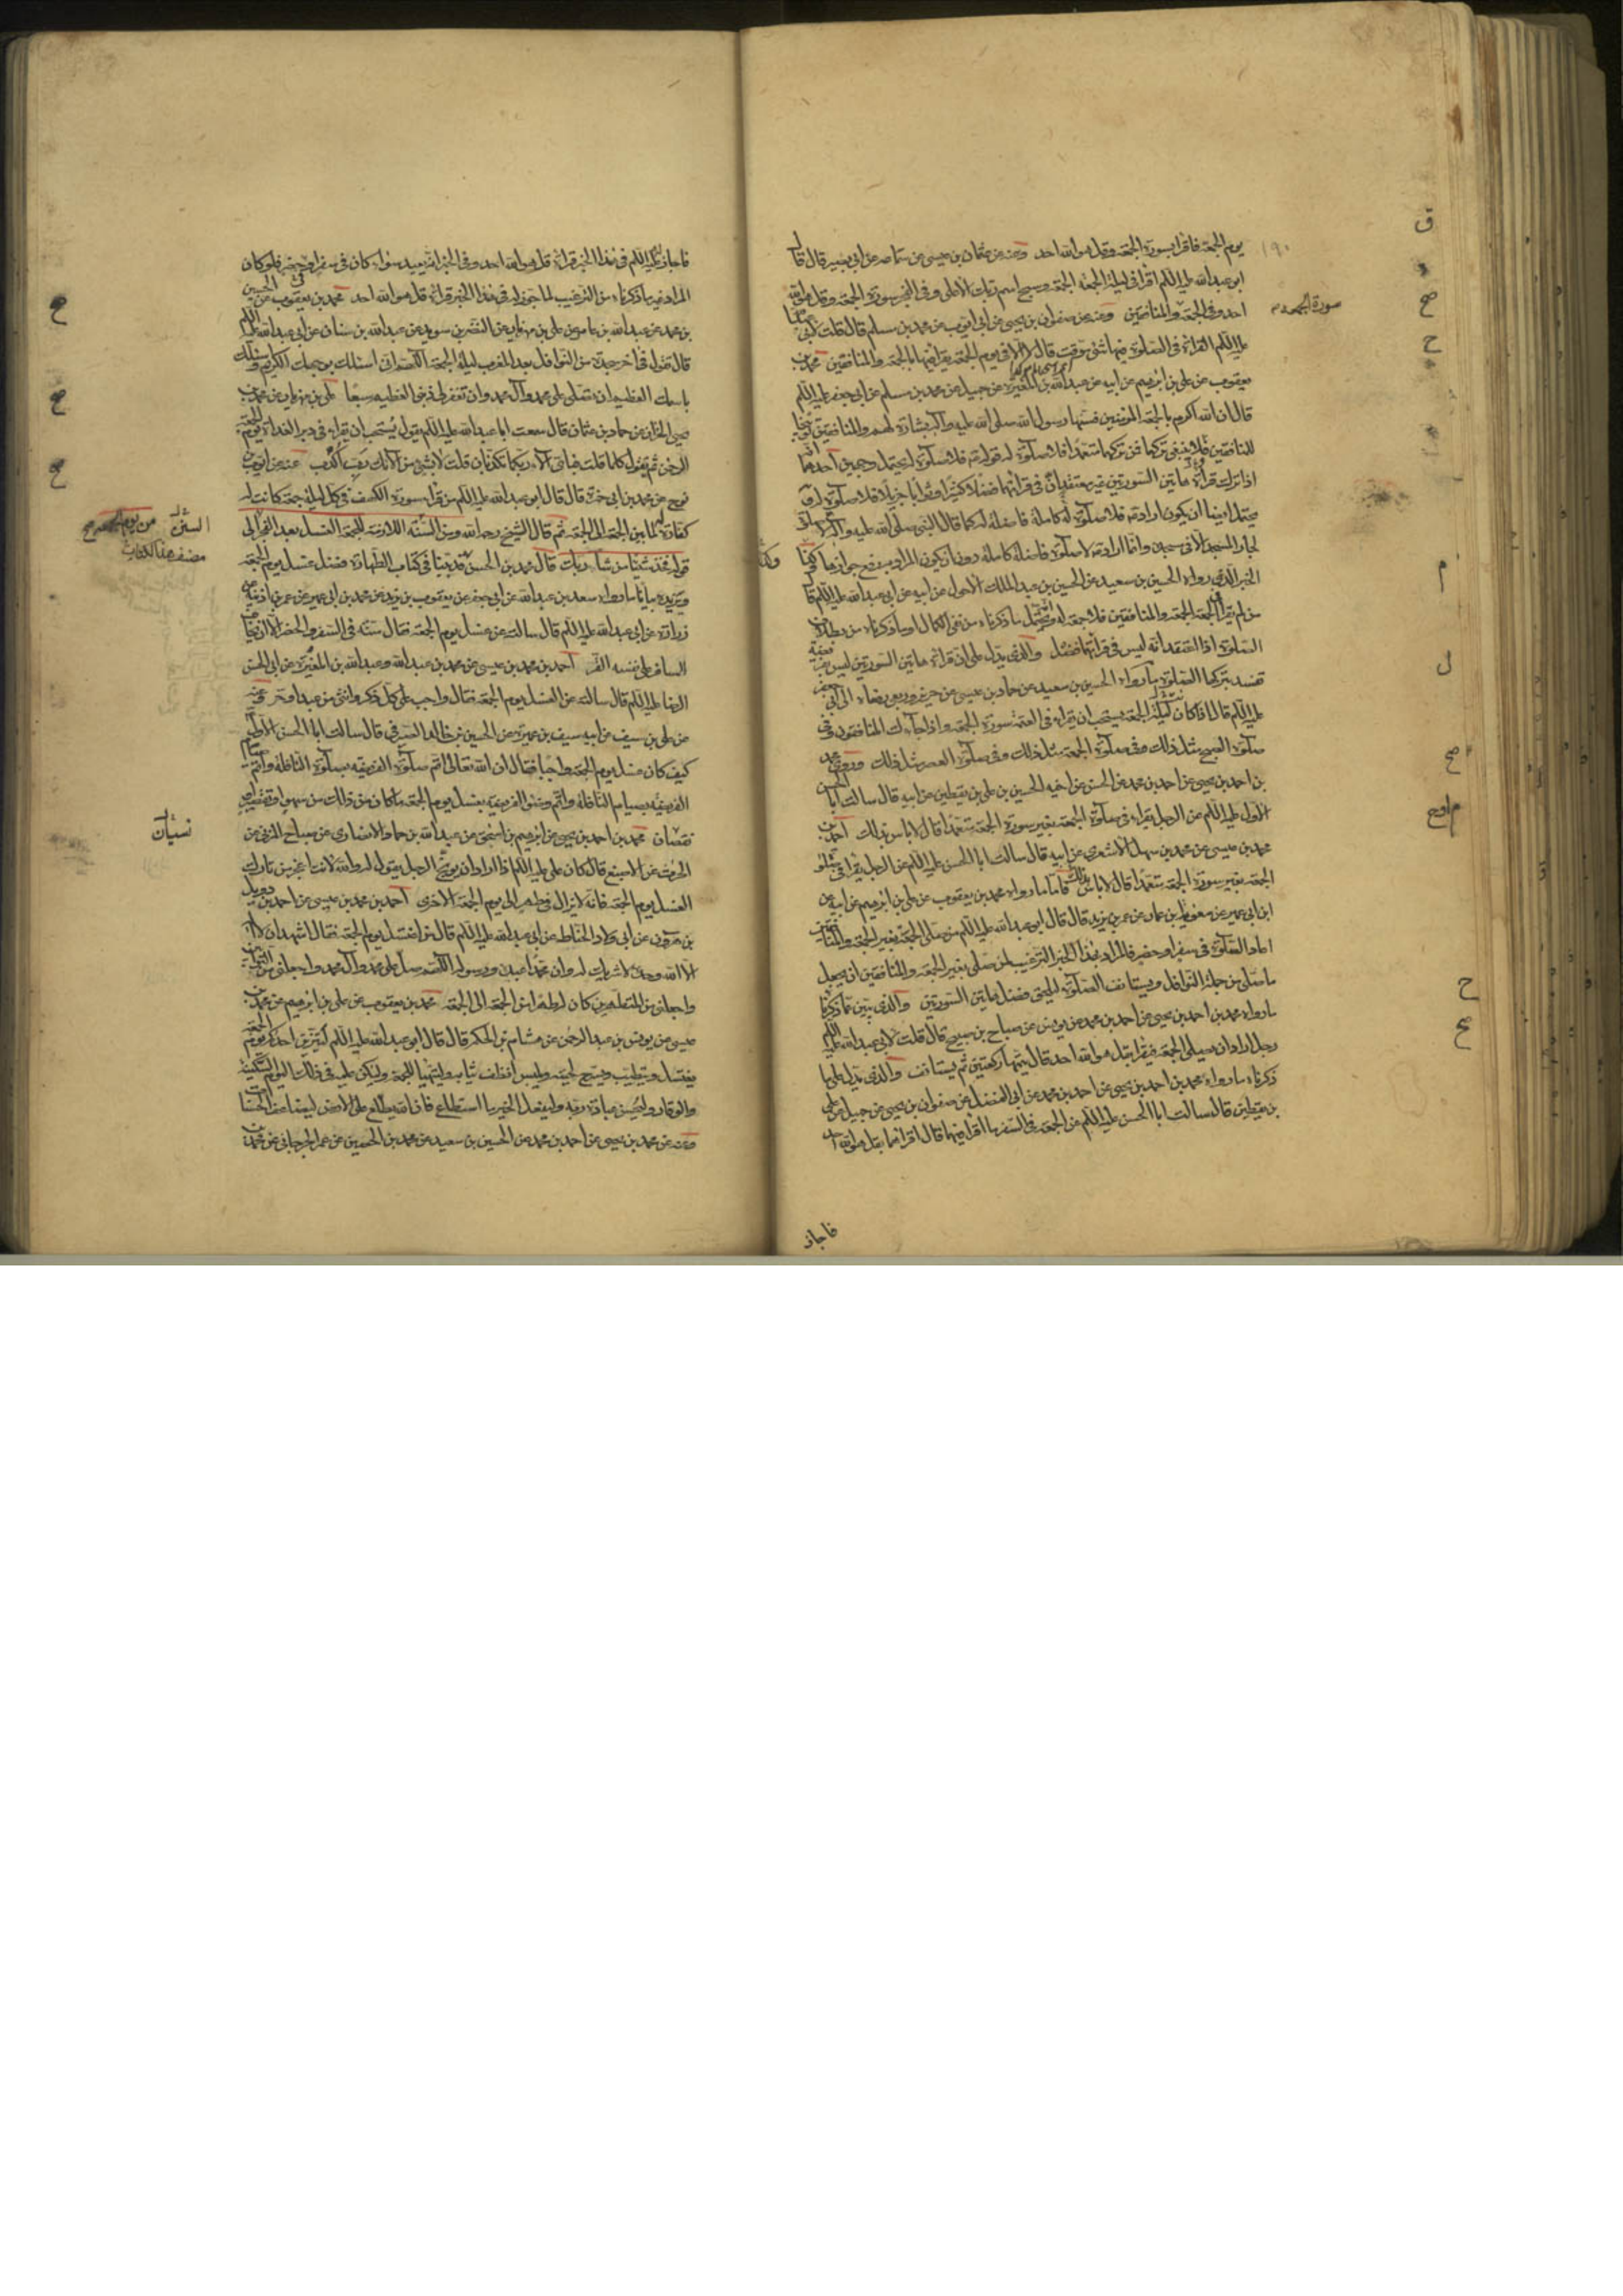 يوم الجمعة فاقرا بسورة الجمعة وقل هو الله احد وعنه عن عثمان بن عيسى عن سماعة عن ابي بصير قال قال
ابو عبد الله عليه السلم اقرا في ليلة الجمعة الجمعة وسبح اسم ربك الاعلى وفي الفجر سورة الجمعة وقل هو الله
احد وفي الجمعة والمنافقين وعنه عن صفوان بن يحيى عن ابي ايوب عن محمد بن مسلم قال قلت لابي عبد الله
عليه السلم القراءة في الصلوة فيها شئ موقت قال لا الا في يوم الجمعة يقرا فيها بالجمعة والمنافقين محمد بن
يعقوب عن علي بن ابرهيم عن ابيه عن عبد الله بن المغيرة عن جميل عن محمد بن مسلم عن ابي جعفر عليه السلم
قال ان الله اكرم بالجمعة المومنين فسنها رسول الله صلى الله عليه وآله بشارة لهم والمنافقين توبيخا
للمنافقين فلا ينبغي تركها فمن تركها متعمدا فلا صلوة له قوله فلا صلوة له يحتمل وجهين احدهما انه
اذا ترك قراءة هاتين السورتين غير معتقد ان في قراتهما فضلا كثيرا وثوابا جزيلا فلا صلوة له و
يحتمل ايضا ان يكون اراد به فلا صلوة له كاملة فاضلة كما قال النبي صلى الله عليه وآله لا صلوة
لجار المسجد الا في مسجده وانما اراد به لا صلوة فاضلة كاملة دون ان يكون المراد به رفع جوازها وكذا
الخبر الذي رواه الحسين بن سعيد عن الحسين بن عبد الملك الاحول عن ابيه عن ابي عبد الله عليه السلم قال
من لم يقرا في الجمعة الجمعة والمنافقين فلا جمعة له يحتمل ما ذكرناه من نفي الكمال او ما ذكرناه من بطلان
الصلوة اذا اعتقد انه ليس في قراتهما فضل والذي يدل على ان قراءة هاتين السورتين ليس بفريضة
تفسد بتركها الصلوة ما رواه الحسين بن سعيد عن حماد بن عيسى عن حريز وربعي رفعاه الى ابي جعفر
عليه السلم قال اذا كان ليلة الجمعة يستحب ان يقراء في العتمة سورة الجمعة واذا جاءك المنافقون وفي
صلوة الصبح مثل ذلك وفي صلوة الجمعة مثل ذلك وفي صلوة العصر مثل ذلك وروى محمد
بن احمد بن يحيى عن احمد بن محمد عن الحسن عن اخيه الحسين بن علي بن يقطين عن ابيه قال سالت ابا الحسن
الاول عليه السلم عن الرجل يقراء في صلوة الجمعة بغير سورة الجمعة متعمدا قال لا باس بذلك احمد بن
محمد بن عيسى عن محمد بن سهل الاشعري عن ابيه قال سالت ابا الحسن عليه السلم عن الرجل يقرا في صلوة
الجمعة بغير سورة الجمعة متعمدا قال لا باس بذلك فاما ما رواه محمد بن يعقوب عن علي بن ابرهيم عن ابيه عن
ابن ابي عمير عن معوية بن عمار عن عمر بن يزيد قال قال ابو عبد الله عليه السلم من صلى الجمعة بغير الجمعة والمنافقين
اعاد الصلوة في سفر او حضر فالمراد بهذا الخبر الترغيب لمن صلى بغير الجمعة والمنافقين ان يجعل
ما صلى من جملة النوافل ويستانف الصلوة ليلحق فضل هاتين السورتين والذي يبين ما ذكرناه
ما رواه محمد بن احمد بن يحيى عن احمد بن محمد عن يونس عن صباح بن صبيح قال قلت لابي عبد الله عليه السلم
رجل اراد ان يصلى الجمعة فيقرا بقل هو الله احد قال يتمها ركعتين ثم يستانف والذي يدل على ما
ذكرناه ما رواه محمد بن احمد بن يحيى عن احمد بن محمد عن ابي الفضل عن صفوان بن يحيى عن جميل عن علي
بن يقطين قال سالت ابا الحسن عليه السلم عن الجمعة في السفر ما اقرا فيهما قال اقراهما بقل هو الله احد
فاجاز
١٩٠
سورة الجمعة
فاجاز عليه السلم في هذا الخبر قراءة قل هو الله احد وفي الخبر انه يعيد سواء كان في سفر او حضر فلو كان
المراد غير ما ذكرناه من الترغيب لما جوز له في هذا الخبر قراءة قل هو الله احد محمد بن يعقوب عن الحسين
بن محمد عن عبد الله بن عامر عن علي بن مهزيار عن النضر بن سويد عن عبد الله بن سنان عن ابي عبد الله عليه السلم
قال تقول في اخر سجدة من النوافل بعد المغرب ليلة الجمعة اللهم اني اسئلك بوجهك الكريم واسئلك
باسمك العظيم ان تصلى على محمد وآل محمد وان تغفر لي ذنبي العظيم سبعا علي بن مهزيار عن محمد بن
يحيى الخزاز عن حماد بن عثمان قال سمعت ابا عبد الله عليه السلم يقول يستحب ان يقراء في دبر الغداة يوم الجمعة
الرحمن ثم تقول كلما قلت فباى آلاء ربكما تكذبان قلت لا بشئ من آلائك رب اكذب عنه عن ايوب بن
نوح عن محمد بن ابي حمزة قال قال ابو عبد الله عليه السلم من قرا سورة الكهف في كل ليلة جمعة كانت له
كفارة لما بين الجمعة الى الجمعة ثم قال الشيخ رحمه الله ومن السنة اللازمة للجمعة الغسل بعد الفجر الى
قوله شيئا من شاربك قال محمد بن الحسن قد بينا في كتاب الطهارة فضل غسل يوم الجمعة
ويزيده بيانا ما رواه سعد بن عبد الله عن ابي جعفر عن يعقوب بن يزيد عن محمد بن ابي عمير عن عمر بن اذينة عن
زرارة عن ابي عبد الله عليه السلم قال سالته عن غسل يوم الجمعة فقال سنة في السفر والحضر الا ان يخاف
المسافر على نفسه القر احمد بن محمد بن عيسى عن محمد بن عبد الله وعبد الله بن المغيرة عن ابي الحسن
الرضا عليه السلم قال سالته عن الغسل يوم الجمعة فقال واجب على كل ذكر وانثى من عبد او حر عنه
عن علي بن سيف عن ابيه سيف بن عميرة عن الحسين بن خالد الصيرفي قال سالت ابا الحسن الاول
كيف كان غسل يوم الجمعة واجبا فقال ان الله تعالى اتم صلوة الفريضة بصلوة النافلة واتم صيام
الفريضة بصيام النافلة واتم وضوء الفريضة بغسل يوم الجمعة ما كان من ذلك من سهو او تقصير او
نقصان محمد بن احمد بن يحيى عن ابرهيم بن اسحق عن عبد الله بن حماد الانصاري عن صباح المزني عن
الحرث عن الاصبغ قال كان علي عليه السلم اذا اراد ان يوبخ الرجل يقول له والله لانت اعجز من تارك
الغسل يوم الجمعة فانه لا يزال في طهر الى يوم الجمعة الاخرى احمد بن محمد بن عيسى عن احمد بن
بن عن ابي ولاد الحناط عن ابي عبد الله عليه السلم قال من اغتسل يوم الجمعة فقال اشهد ان لا اله
الا الله وحده لا شريك له وان محمدا عبده ورسوله اللهم صل على محمد وآل محمد واجعلني من التوابين
واجعلني من المتطهرين كان له طهرا من الجمعة الى الجمعة محمد بن يعقوب عن علي بن ابرهيم عن محمد بن
عيسى عن يونس بن عبد الرحمن عن هشام بن الحكم قال قال ابو عبد الله عليه السلم ليتزين احدكم يوم الجمعة
يغتسل ويتطيب ويسرح لحيته ويلبس انظف ثيابه وليتهيا للجمعة وليكن عليه في ذلك اليوم السكينة
والوقار وليحسن عبادة ربه وليفعل الخير ما استطاع فان الله يطلع على الارض ليضاعف الحسنات
وعنه عن محمد بن يحيى عن احمد بن محمد عن الحسين بن سعيد عن محمد بن الحصين عن عمر الجرجاني عن محمد بن
نسيان